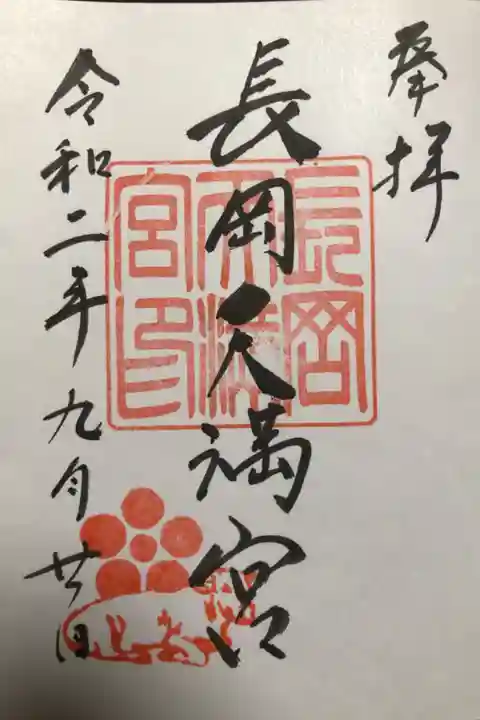 奉拝
長岡天満宮
長岡天満宮印
令和二年九月廿日